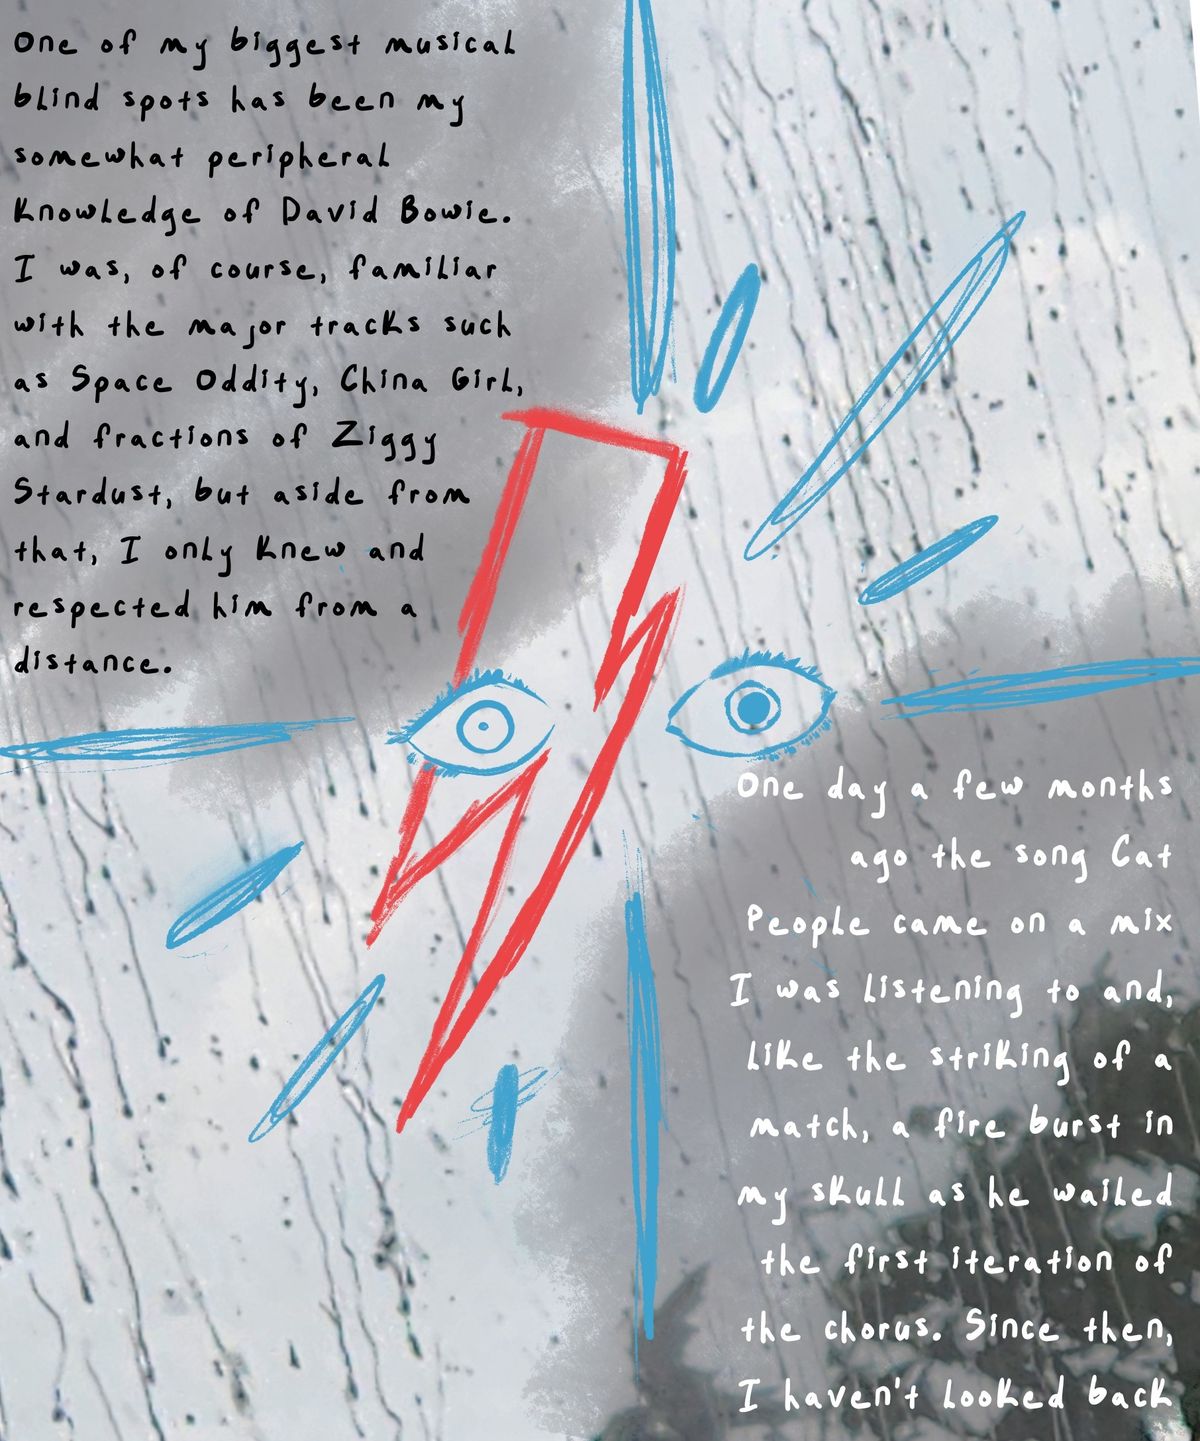 One of my biggest musical
blind spots has been my
somewhat peripheral
knowledge of David Bowie.
I was, of course, familiar
with the major tracks such
as Space Oddity, China Girl,
and fractions of Ziggy
Stardust, but aside from
that, I only knew and
respected him from a
distance.
One day a few months
ago the song Cat
People came on a mix
I was listening to and,
like the striking of a
match, a fire burst in
my skull as he wailed
the first iteration of
the chorus. Since then,
I haven't looked back